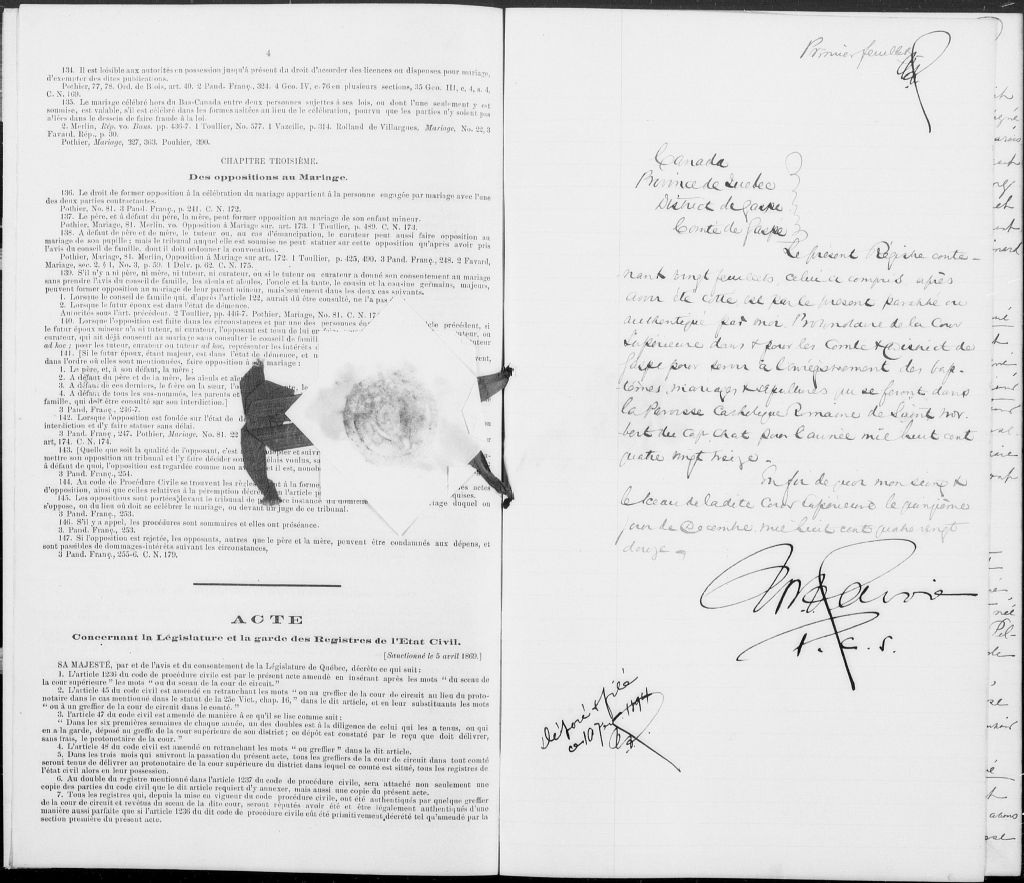 4
134. Il est loisible aux autorités en possession jusqu'à présent du droit d'accorder des licences ou dispenses pour mariage,
d'exempter des dites publications.
Pothier, 77, 78. Ord. de Blois, art. 40. 2 Pand. Franç., 324. 4 Geo. IV, c. 76 en plusieurs sections, 35 Geo. III, c. 4, s. 4,
C. N. 169.
135. Le mariage célébré hors du Bas-Canada entre deux personnes sujettes à ses lois, ou dont l'une seulement y est
soumise, est valable, s'il est célébré dans les formes usitées au lieu de la célébration, pourvu que les parties n'y soient pas
allées dans le dessein de faire fraude à la loi.
2. Merlin, Rép. vo. Bans. pp. 436-7. 1 Toullier, No. 577. 1 Vazeille, p. 314. Rolland de Villargues, Mariage, No. 22, 3
Favard. Rép., p. 30.
Pothier, Mariage, 327, 363. Pouhier, 390.
CHAPITRE TROISIÈME.
Des oppositions au Mariage.
136. Le droit de former opposition à la célébration du mariage appartient à la personne engagée par mariage avec l'une
des deux parties contractantes.
Pothier, No. 81. 3 Pand. Franç., p. 241. C. N. 172.
137. Le père, et à défaut du père, la mère, peut former opposition au mariage de son enfant mineur.
Pothier, Mariage, 81. Merlin, vo. Opposition à Mariage sur. art. 173. 1 Toullier, p. 489. C. N. 173.
138. A défaut de père et de mère, le tuteur ou, au cas d'émancipation, le curateur peut aussi faire opposition au
mariage de son pupille; mais le tribunal auquel elle est soumise ne peut statuer sur cette opposition qu'après avoir pris
l'avis du conseil de famille, dont il doit ordonner la convocation.
Pothier, Mariage, 81. Merlin, Opposition à Mariage sur art. 172. 1 Toullier, p. 425, 490. 3 Pand. Franç., 248. 2 Favard,
Mariage, sec. 2. § 1, No. 3, p. 59. 1 Delv. p. 62. C. N. 175.
139. S'il n'y a ni père, ni mère, ni tuteur, ni curateur, ou si le tuteur ou curateur a donné son consentement au mariage
sans prendre l'avis du conseil de famille, les aïeuls et aïeules, l'oncle et la tante, le cousin et la cousine germains, majeurs,
peuvent former opposition au mariage de leur parent mineur, mais seulement dans les deux cas suivants.
1. Lorsque le conseil de famille qui, d'après l'article 122, aurait dû être consulté, ne l'a pas
2. Lorsque le futur époux est dans l'état de démence.
Autorités sous l'art. précédent. 2 Toullier, pp. 446-7. Pothier, Mariage, No. 81. C. N.
140. Lorsque l'opposition est faite dans les circonstances et par une des personnes précédent, si
le futur époux mineur n'a ni tuteur, ni curateur, l'opposant est tenu de lui
curateur, qui ait déjà consenti au mariage sans consulter le conseil de
ad hoc; pour les tuteur, curateur ou tuteur ad hoc, représenter les intérêts
141. [Si le futur époux, étant majeur, est dans l'état de démence, et
dans l'ordre où elles sont mentionnées, faire opposition à
1. Le père, et, à son défaut, la mère;
2. A défaut du père et de la mère, les aïeuls et
3. A défaut de ces derniers, le frère ou la sœur,
4. A défaut de tous les sus-nommés, les parents et
famille, qui doit être consulté sur son interdiction.]
3 Pand. Franç., 246-7.
142. Lorsque l'opposition est fondée sur l'état de
interdiction et d'y faire statuer sans délai.
3 Pand. Franç., 247. Pothier, Mariage, No. 81. 22
art, 174. C. N. 174.
143. [Quelle que soit la qualité de l'opposant, c'est
mettre son opposition au tribunal et l'y faire décider
à défaut de quoi, l'opposition est regardée comme non
3 Pand. Franç., 254.
144. Au code de Procédure Civile se trouvent les
d'opposition, ainsi que celles relatives à la péremption
145. Les oppositions sont portées devant le tribunal de duquel on
s'oppose, ou du lieu où doit se célébrer le mariage, ou devant un juge de ce tribunal.
3 Pand. Franç., 253.
146. S'il y a appel, les procédures sont sommaires et elles ont préséance.
3. Pand. Franç., 253.
147. Si l'opposition est rejetée, les opposants, autres que le père et la mère, peuvent être condamnés aux dépens, et
sont passibles de dommages-intérêts suivant les circonstances,
3 Pand. Franç., 255-6. C. N. 179.
ACTE
Concernant la Législature et la garde des Registres de l'Etat Civil.
[Sanctionné le 5 avril 1869.]
SA MAJESTÉ, par et de l'avis et du consentement de la Législature de Québec, décrète ce qui suit:
1. L'article 1236 du code de procédure civile est par le présent acte amendé en insérant après les mots " du sceau de
la cour supérieure " les mots " ou du sceau de la cour de circuit."
2. L'article 45 du code civil est amendé en retranchant les mots " ou au greffier de la cour de circuit au lieu du proto-
notaire dans le cas mentionné dans le statut de la 25e Vict., chap. 16, " dans le dit article, et en leur substituants les mots
" ou à un greffier de la cour de circuit dans le comté. "
3. l'article 47 du code civil est amendé de manière à ce qu'il se lise comme suit:
" Dans les six premières semaines de chaque année, un des doubles est à la diligence de celui qui les a tenus, ou qui
en a la garde, déposé au greffe de la cour supérieure de son district; ce dépôt est constaté par le reçu que doit délivrer,
sans frais, le protonotaire de la cour. "
4. L'article 48 du code civil est amendé en retranchant les mots " ou greffier " dans le dit article.
5. Dans les trois mois qui suivront la passation du présent acte, tous les greffiers de la cour de circuit dans tout comté
seront tenus de délivrer au protonotaire de la cour supérieure du district dans lequel ce comté est situé, tous les registres de
l'état civil alors en leur possession.
6. Au double du registre mentionné dans l'article 1237 du code de procédure civile, sera attaché non seulement une
copie des parties du code civil que le dit article requiert d'y annexer, mais aussi une copie du présent acte.
7. Tous les registres qui, depuis la mise en vigueur du code procédure civile, ont été authentiqués par quelque greffier
de la cour de circuit et revêtus du sceau de la dite cour, seront réputés avoir été et être légalement authentiqués d'une
manière aussi parfaite que si l'article 1236 du dit code de procédure civile eût été primitivement décrété tel qu'amendé par la
section première du présent acte.
Premier feuillet
Canada
Province de Quebec
District de Gaspe
Comté de Gaspe
Le present Régistre conte-
nant vingt feuillets celui ci compris après
avoir été coté est par le present paraphé ou
authentiqué par moi Protonotaire de la Cour
Superieure dans & pour les Comté & District de
Gaspe pour servir à l'enregistrement des bap-
têmes, mariages & sepultures qui se feront dans
la Paroisse Catholique Romaine de Saint Nor-
bert du Cap Chat pour l'année mil huit cent
quatre vingt treize.
En foi de quoi mon seing &
le sceau de la dite Cour Superieure le quinzième
jour de Decembre mil huit cent quatre vingt
douze
P. C. S.
déposé & filé
ce 10 1894